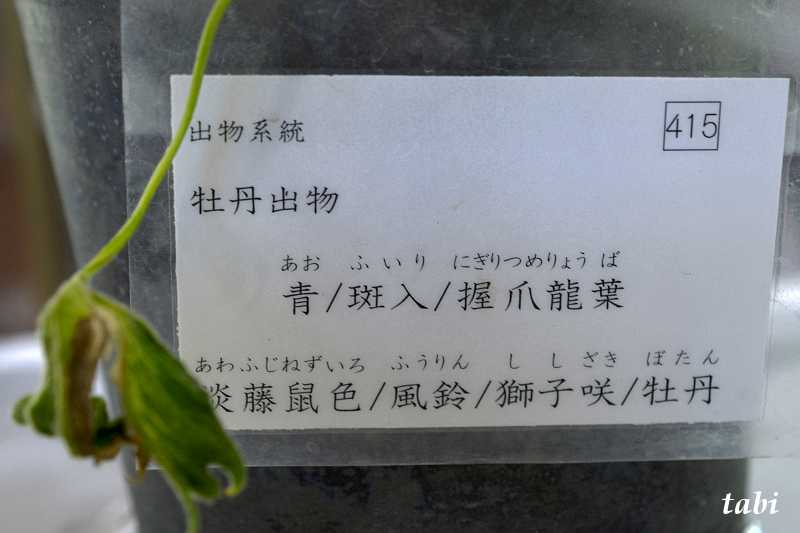 出物系統
415
牡丹出物
あお ふいり にぎりつめりょう ば
青/斑入/握爪龍葉
あわふじねずいろ ふうりん し し ざき ぼたん
淡藤鼠色/風鈴/獅子咲/牡丹
tabi